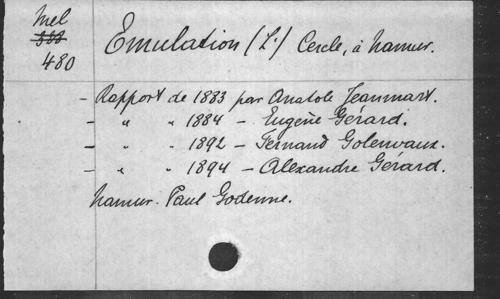 Mel
388
480
Emulation (L') Cercle, à Namur.
- Rapport de 1883 par Anatole Jeanmart.
- " " 1884 - Eugène Gérard.
- " " 1892 - Fernand Golenvaux.
- " " 1894 - Alexandre Gérard.
Namur. Paul Godenne.